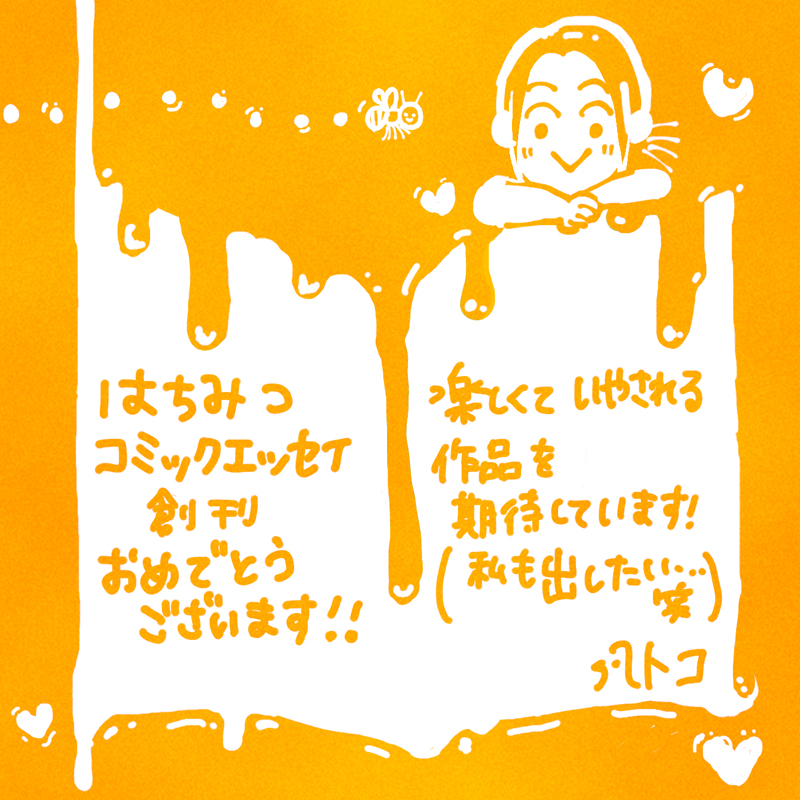 はちみつ
コミックエッセイ
創刊
おめでとう
ございます!!
楽しくて いやされる
作品を
期待しています!
(私も出したい…
笑)
ハトコ